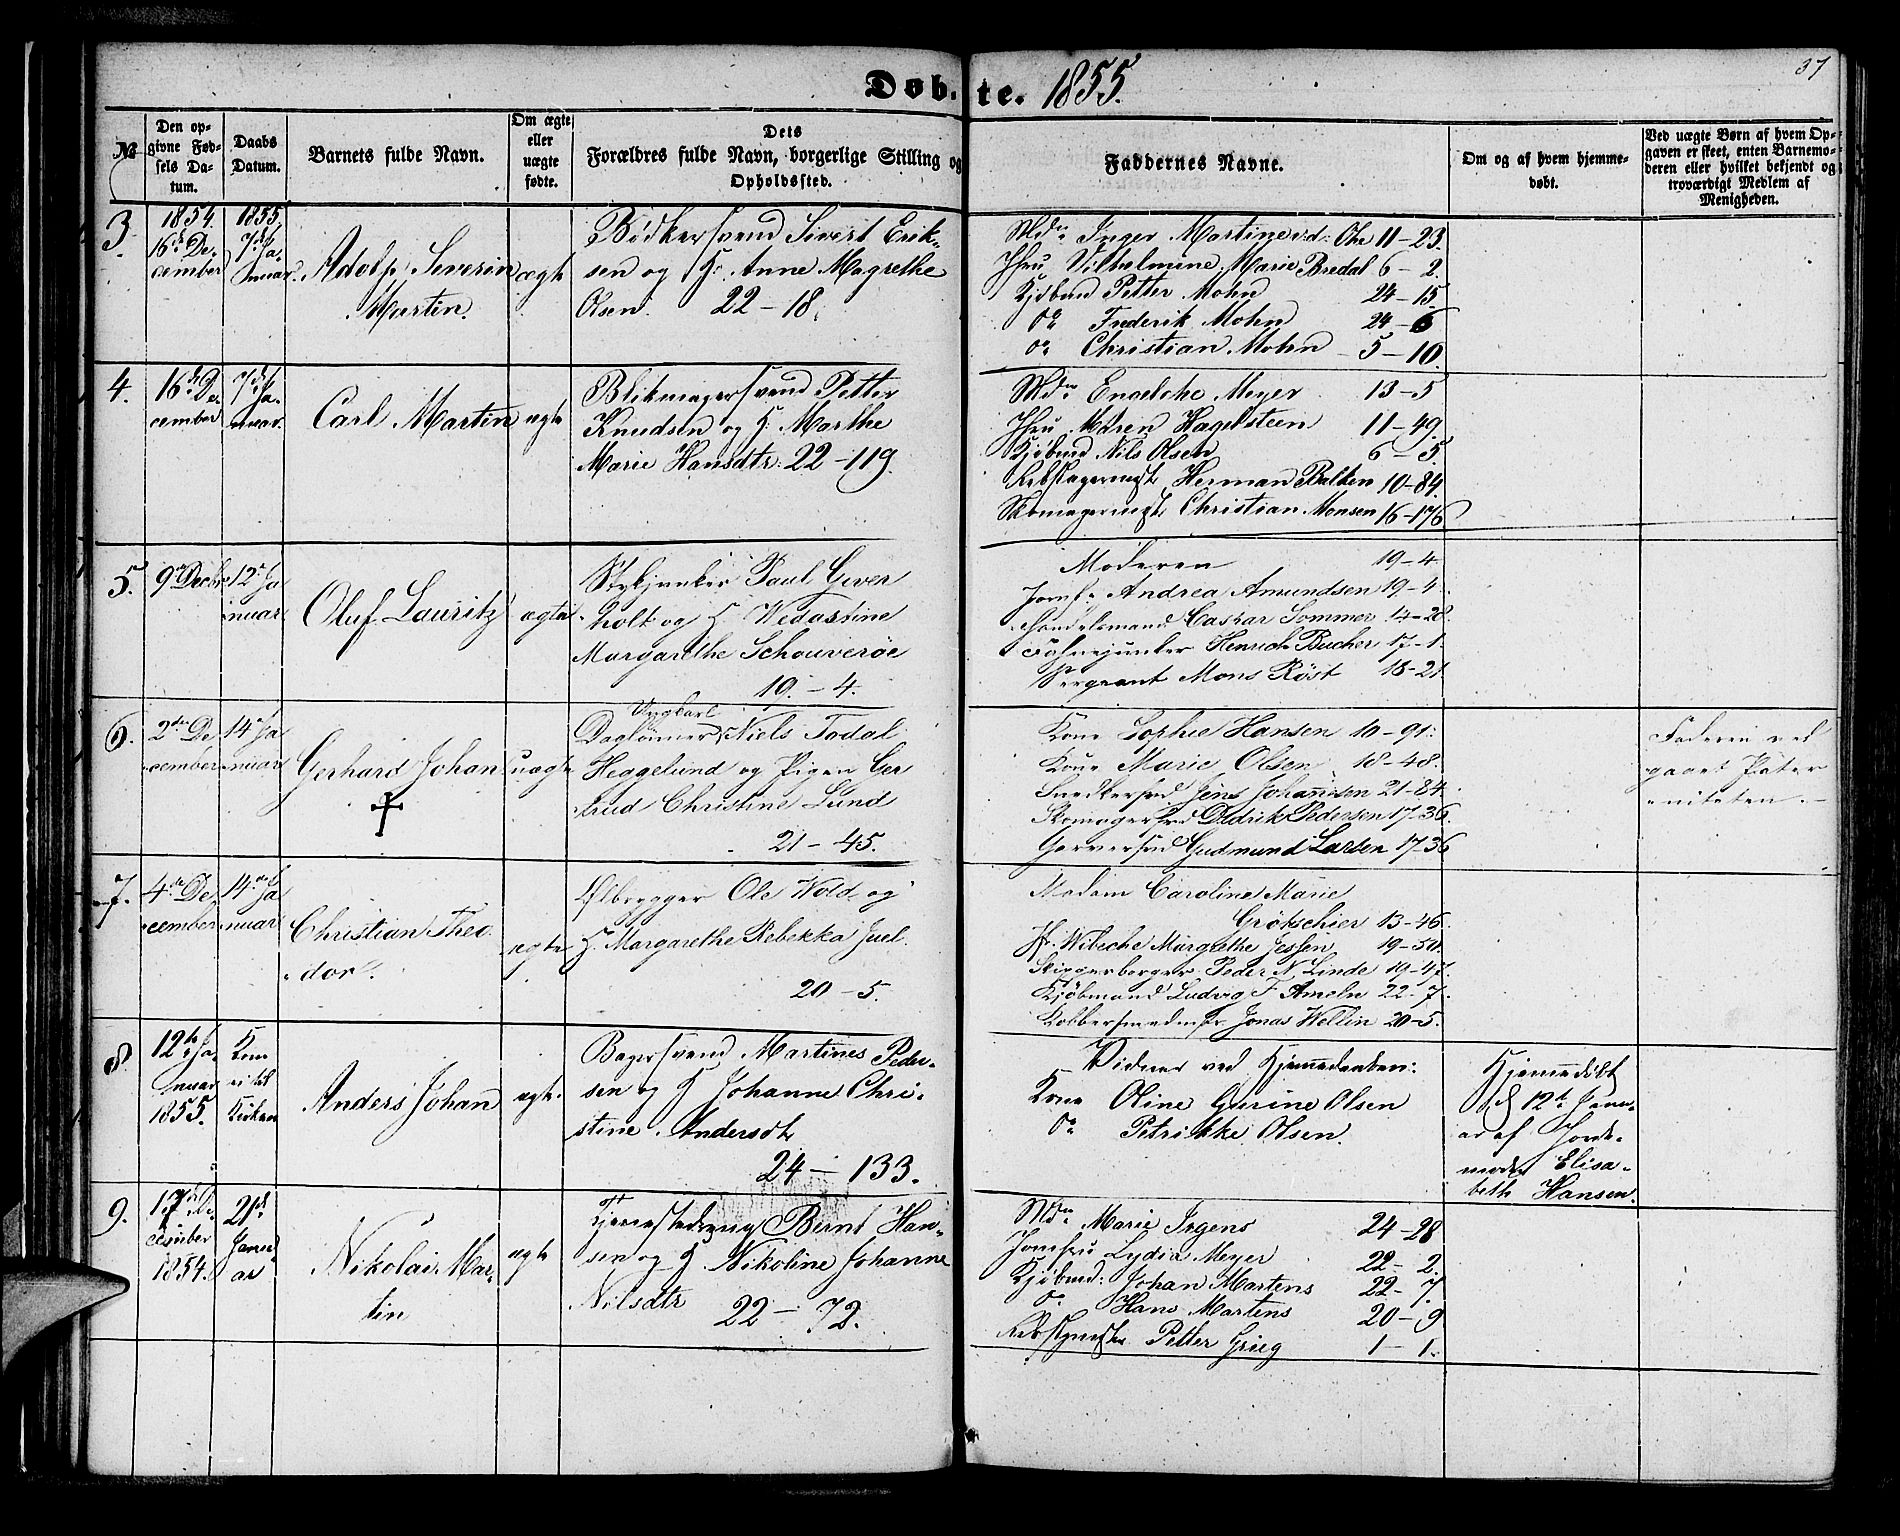 Døbte. 1855.
37
№
Den opgivne Fødsels Datum.
Daabs Datum.
Barnets fulde Navn.
Om ægte eller uægte fødte.
Dets Forældres fulde Navn, borgerlige Stilling og Opholdssted.
Faddernes Navne.
Om og af hvem hjemmedøbt.
Ved uægte Børn af hvem Opgaven er skeet, enten Barnemoderen eller hvilket bekjendt og troværdigt Medlem af Menigheden.
3.
1854.
16de De-
cember
1855.
7de Ja-
nuar
Adolp Severin
Martin.
ægte
Bødkersvend Sivert Erik-
sen og H. Anne Magrethe
Olsen. 22 – 18.
Mdm Inger Martine v.d. Ohe 11 – 23.
Jfru Vilhelmine Marie Bredal 6 – 2.
Kjøbmd Petter Mohn 24 – 15.
do Frederik Mohn 24 – 6
do Christian Mohn 5 – 10.
4.
16de De-
cember
7de Ja-
nuar.
Carl Martin
ægte
Blikmagersvend Petter
Knudsen og H. Marthe
Marie Hansdtr. 22 – 119.
Mdm Engelche Meyer 13 – 5
Jfru Maren Hagelsteen 11 – 49.
Kjøbmd Nils Olsen 6 – 5.
Rebslagermest. Herman Balthen 10 – 84.
Skomagermest. Christian Monsen 16 – 176
5.
9de Decbr
12te Ja
nuar
Oluf Lauritz
ægte
Stykjunker Paul Gever
holt og H. Wedastine
Margarethe Schouverøe
19. – 4.
Moderen 19 – 4
Jomf. Andrea Amundsen 19 – 4.
Handelsmand Caspar Sommer 14 – 28.
Fahnejunker Henrich Bucher 17 – 1.
Sergeant Mons Röst 18 – 21
6.
2den De
cember
14de Ja
nuar
Gerhard Johan
uægte
Ungkarl
Daglönner Niels Todal
Heggelund og Pigen Ger
trud Christine Lund
21 – 45.
Kone Sophie Hansen 10 – 91.
Kone Marie Olsen 18 – 48.
Snedkersvd Jens Johannesen 21 – 84.
Skomagersvd Didrik Pedersen 17 – 36.
Garversvd Gudmund Larsen 17 – 36
Faderen ved
gaaet Pater
niteten. –
7.
4de De
cember
14de Ja
nuar
Christian Theo
dor.
ægte
Ølbrygger Ole Wold og
H. Margarethe Rebekka Juel.
20 – 5.
Madam Caroline Marie
Grökschier 13 – 46.
Jf. Wibeche Margrethe Jessen 19 – 50.
Skipperborger Peder N. Linde 19 – 47.
Kjøbmand Ludvig F. Ameln 22 – 7.
Kobbersmedmstr Jonas Wellin 20 – 5.
8.
12te Ja-
nuar
1855.
Kom
ei til
Kirken
Anders Johan
ægte.
Bagersvend Martines Peder-
sen og H. Johanne Chri-
stine Andersdtr
24 – 133.
Vidner ved Hjemmedaaben:
Kone Oline Gurine Olsen
do Petrikke Olsen.
Hjemmedöbt
d. 12te Janu-
ar af Jorde-
moder Elisa-
beth Hansen.
9.
17de De-
cember
1854.
21de
Janu
ar
Nikolai Mar-
tin
ægte
Bernt Han-
sen og H. Nikoline Johanne
Nilsdtr 22 – 72.
Mdm Marie Irgens 24 – 28
Jomfru Lydia Meyer 22 – 2.
Kjøbmd: Johan Martens 22 – 7
do. Hans Martens 20 – 9
Petter Grieg 1 – 1.